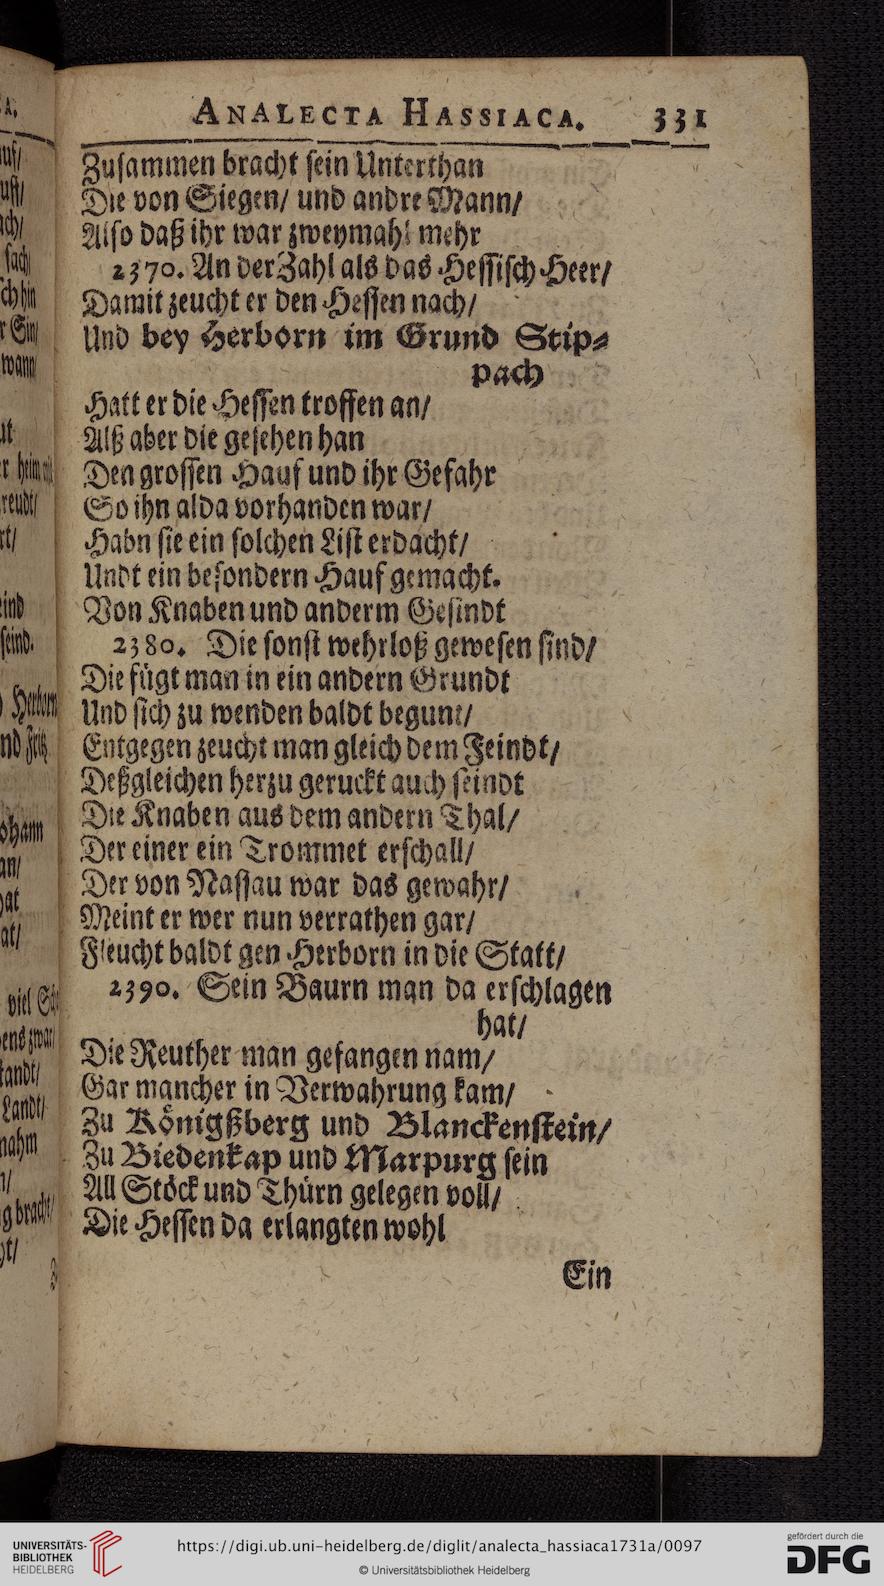 ANALECTA HASSIACA. 331
Zuſammen bracht ſein Unterthan
Die von Siegen/ und andre Mann/
Alſo daß ihr war zweymahl mehr
2370. An der Zahl als das Heſſiſch Heer/
Damit zeucht er den Heſſen nach/
Und bey Herborn im Grund Stip⸗
pach
Hatt er die Heſſen troffen an/
Alß aber die geſehen han
Den groſſen Hauf und ihr Gefahr
So ihn alda vorhanden war/
Habn ſie ein ſolchen Liſt erdacht/
Undt ein beſondern Hauf gemacht.
Von Knaben und anderm Geſindt
2380. Die ſonſt wehrloß geweſen ſind/
Die fügt man in ein andern Grundt
Und ſich zu wenden baldt begunt/
Entgegen zeucht man gleich dem Feindt/
Deßgleichen herzu geruckt auch ſeindt
Die Knaben aus dem andern Thal/
Der einer ein Trommet erſchall/
Der von Naſſau war das gewahr/
Meint er wer nun verrathen gar/
Fleucht baldt gen Herborn in die Statt/
2390. Sein Baurn man da erſchlagen
hat/
Die Reuther man gefangen nam/
Gar mancher in Verwahrung kam/
Zu Königßberg und Blanckenſtein/
Zu Biedenkap und Marpurg ſein
All Stöck und Thürn gelegen voll/
Die Heſſen da erlangten wohl
Ein
UNIVERSITÄTS-
BIBLIOTHEK
HEIDELBERG
https://digi.ub.uni-heidelberg.de/diglit/analecta_hassiaca1731a/0097
© Universitätsbibliothek Heidelberg
gefördert durch die
DFG